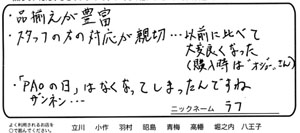 ・品揃えが豊富
・スタッフの方の対応が親切…以前に比べて
大変良くなった
(購入時は"オジーさん)
・「PAOの日」はなくなってしまったんですね
ザンネン…
ニックネーム ラフ
よく利用されるお店を
○で囲んでください。 立川 小作 羽村 昭島 青梅 高幡 堀之内 八王子